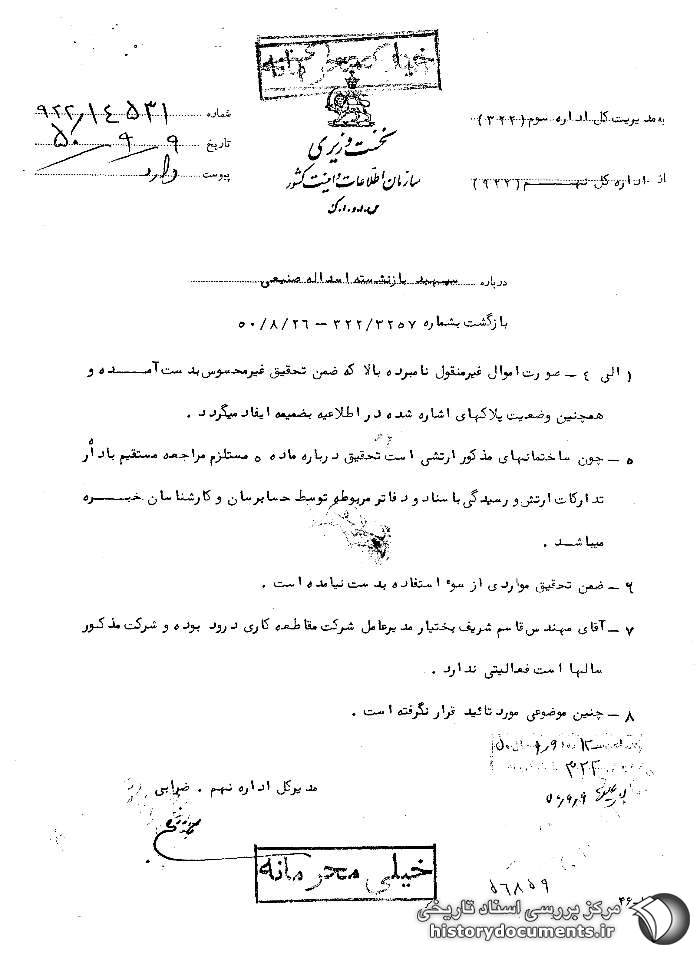 خیلی محرمانه
به مدیریت کل اداره سوم (۳۲۲)
شماره ۹۲۲/۱۴۵۳۱
تاریخ ۵۰/۹/۹
نخست وزیری
از اداره کل نهم (۹۲۲)
پیوست دارد
سازمان اطلاعات و امنیت کشور
س.ا.و.ا.ک
درباره سپهبد بازنشسته اسداله صنیعی
بازگشت بشماره ۳۲۲/۳۲۵۷ – ۵۰/۸/۲۶
۱ الی ٤ – صورت اموال غیرمنقول نامبرده بالا که ضمن تحقیق غیرمحسوس بدست آمده و
همچنین وضعیت پلاکهای اشاره شده در اطلاعیه بضمیمه ایفاد میگردد .
۵ – چون ساختمانهای مذکور ارتشی است تحقیق درباره ماده ۵ مستلزم مراجعه مستقیم باداره
تدارکات ارتش و رسیدگی باسناد و دفاتر مربوطه توسط حسابرسان و کارشناسان خبره
میباشد .
۶ – ضمن تحقیق مواردی از سوء استفاده بدست نیامده است .
۷ – آقای مهندس قاسم شریف بختیار مدیرعامل شرکت مقاطعه کاری درود بوده و شرکت مذکور
سالها است فعالیتی ندارد .
۸ – چنین موضوعی مورد تائید قرار نگرفته است .
۳۲۲
۵۰/۹/۹
مدیرکل اداره نهم . ضرابی
خیلی محرمانه
۵۶۸۵۹
مرکز بررسی اسناد تاریخی
historydocuments.ir